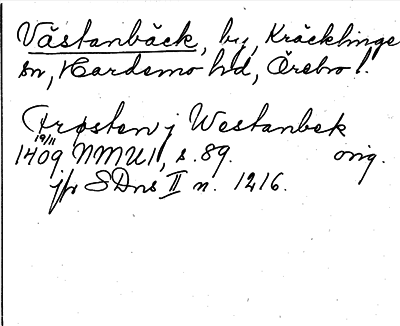 Västanbäck, by, Kräcklinge
sn, Hardemo hd, Örebro l.
Trøsten j Westanbek
19/11
1409 NMU1, s. 89. orig.
jfr SDns II n. 1216.